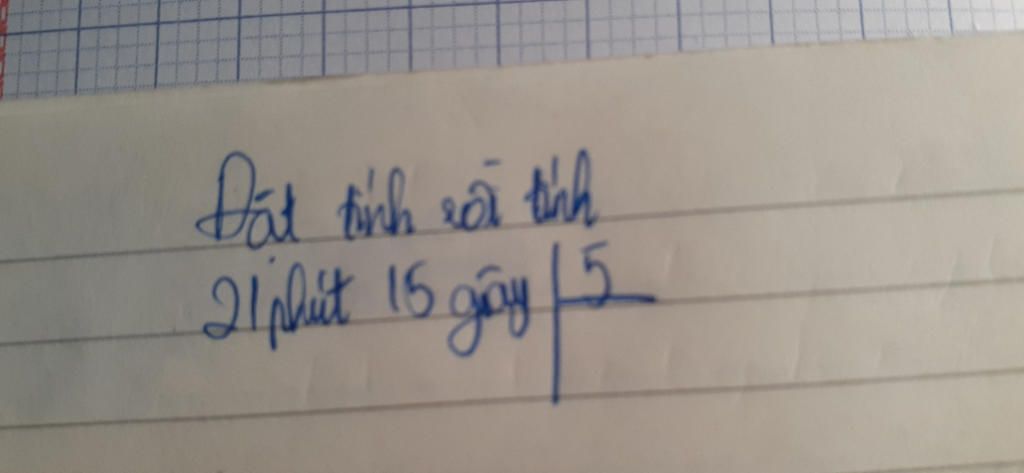 Đặt tính rồi tính
21 phút 15 giây 5